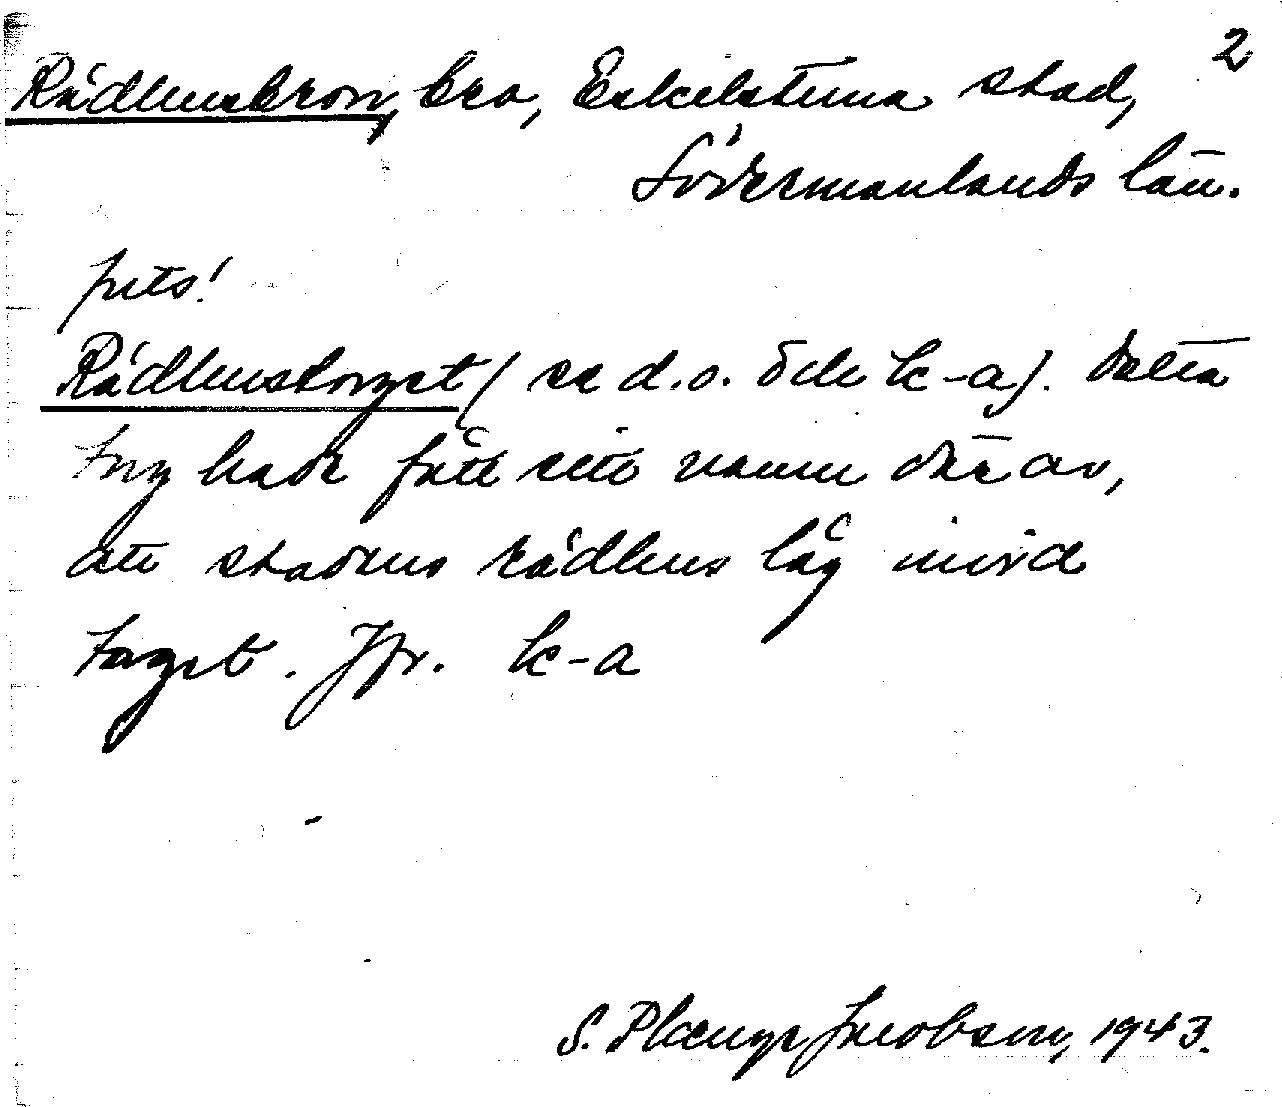 2
Rådhusbron, bro, Eskilstuna stad,
Södermanlands län.
forts!
Rådhustorget (se d.o. och k-a). Detta
torg hade fått sitt namn därav,
att stadens rådhus låg invid
torget. Jfr. k-a
S. Jacobson, 1943.